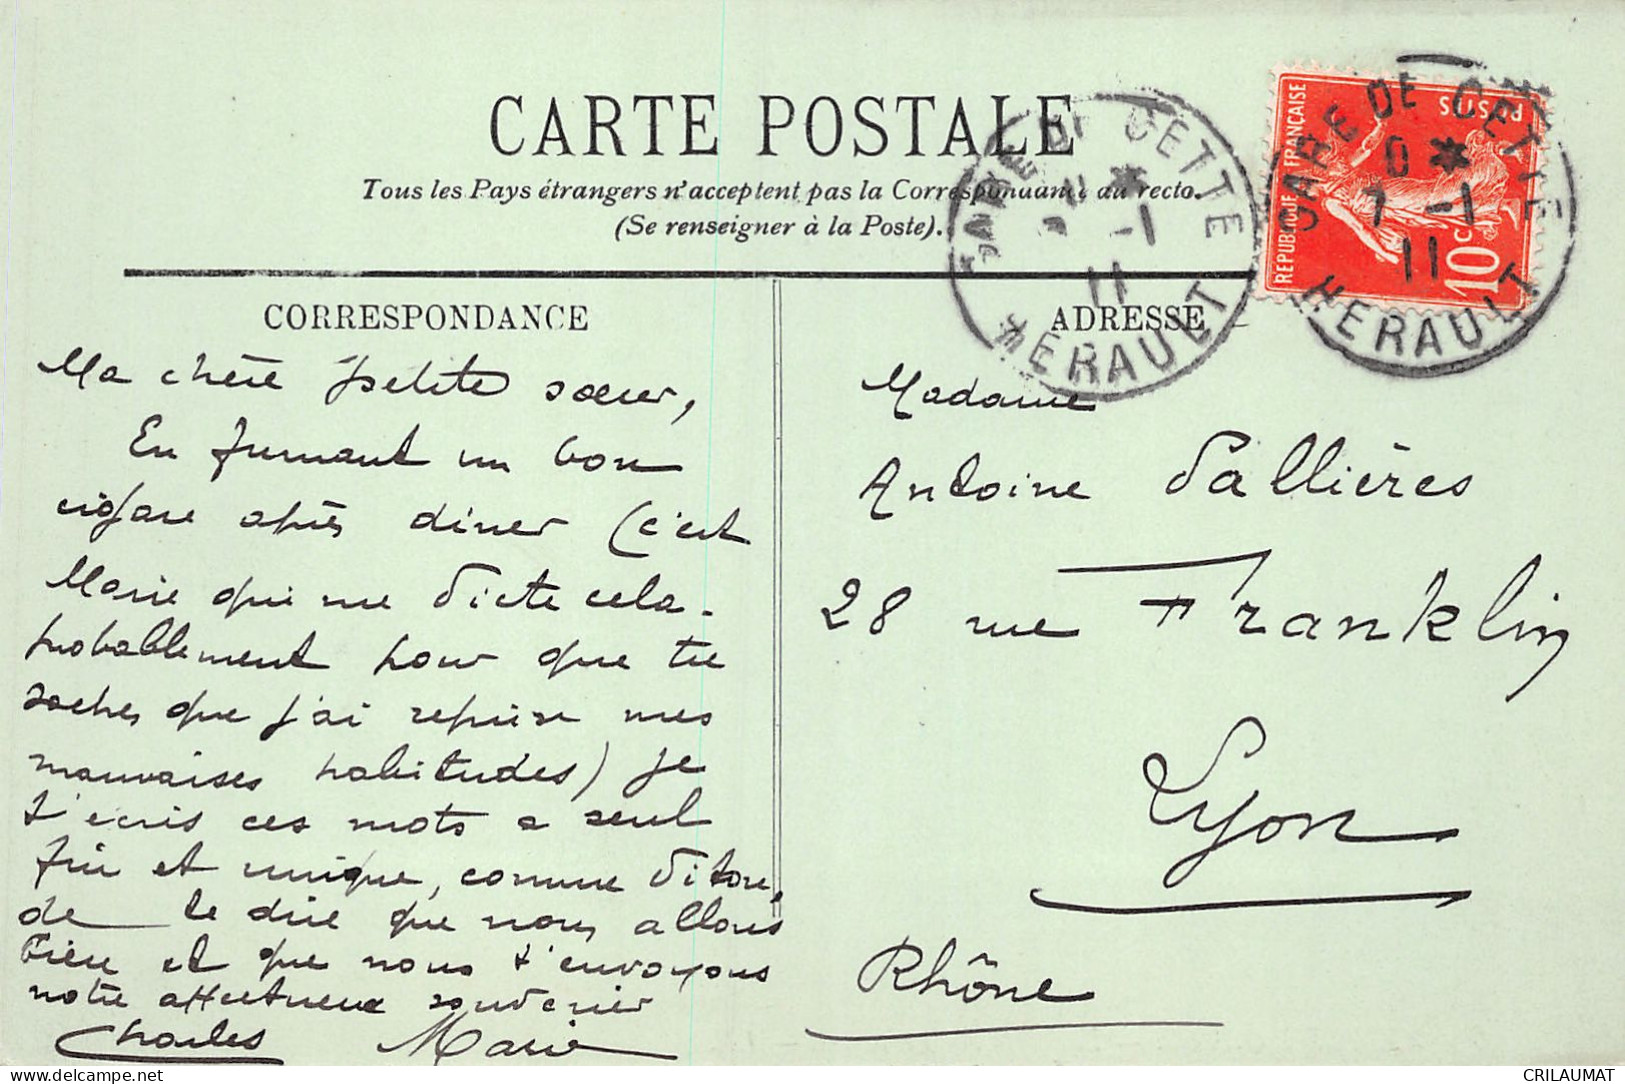 CARTE POSTALE
Tous les Pays étrangers n'acceptent pas la Correspondance au recto.
(Se renseigner à la Poste).
CORRESPONDANCE
Ma chère petite sœur,
En fumant un bon
cigare après diner (c'est
Marie qui me dicte cela.
probablement pour que tu
saches que j'ai repris mes
mauvaises habitudes) je
t'écris ces mots a seul
fin et unique, comme diton,
de te dire que nous allons
bien et que nous t'envoyons
notre affectueux souvenir
Charles Marie
ADRESSE
Madame
Antoine Vallières
28 rue Franklin
Lyon
Rhône
GARE DE CETTE
-1
11
HERAULT
REPUBLIQUE FRANÇAISE
POSTES
10 c
GARE DE CETTE
0 *
7 -1
11
HERAULT
www.delcampe.net
CRILAUMAT